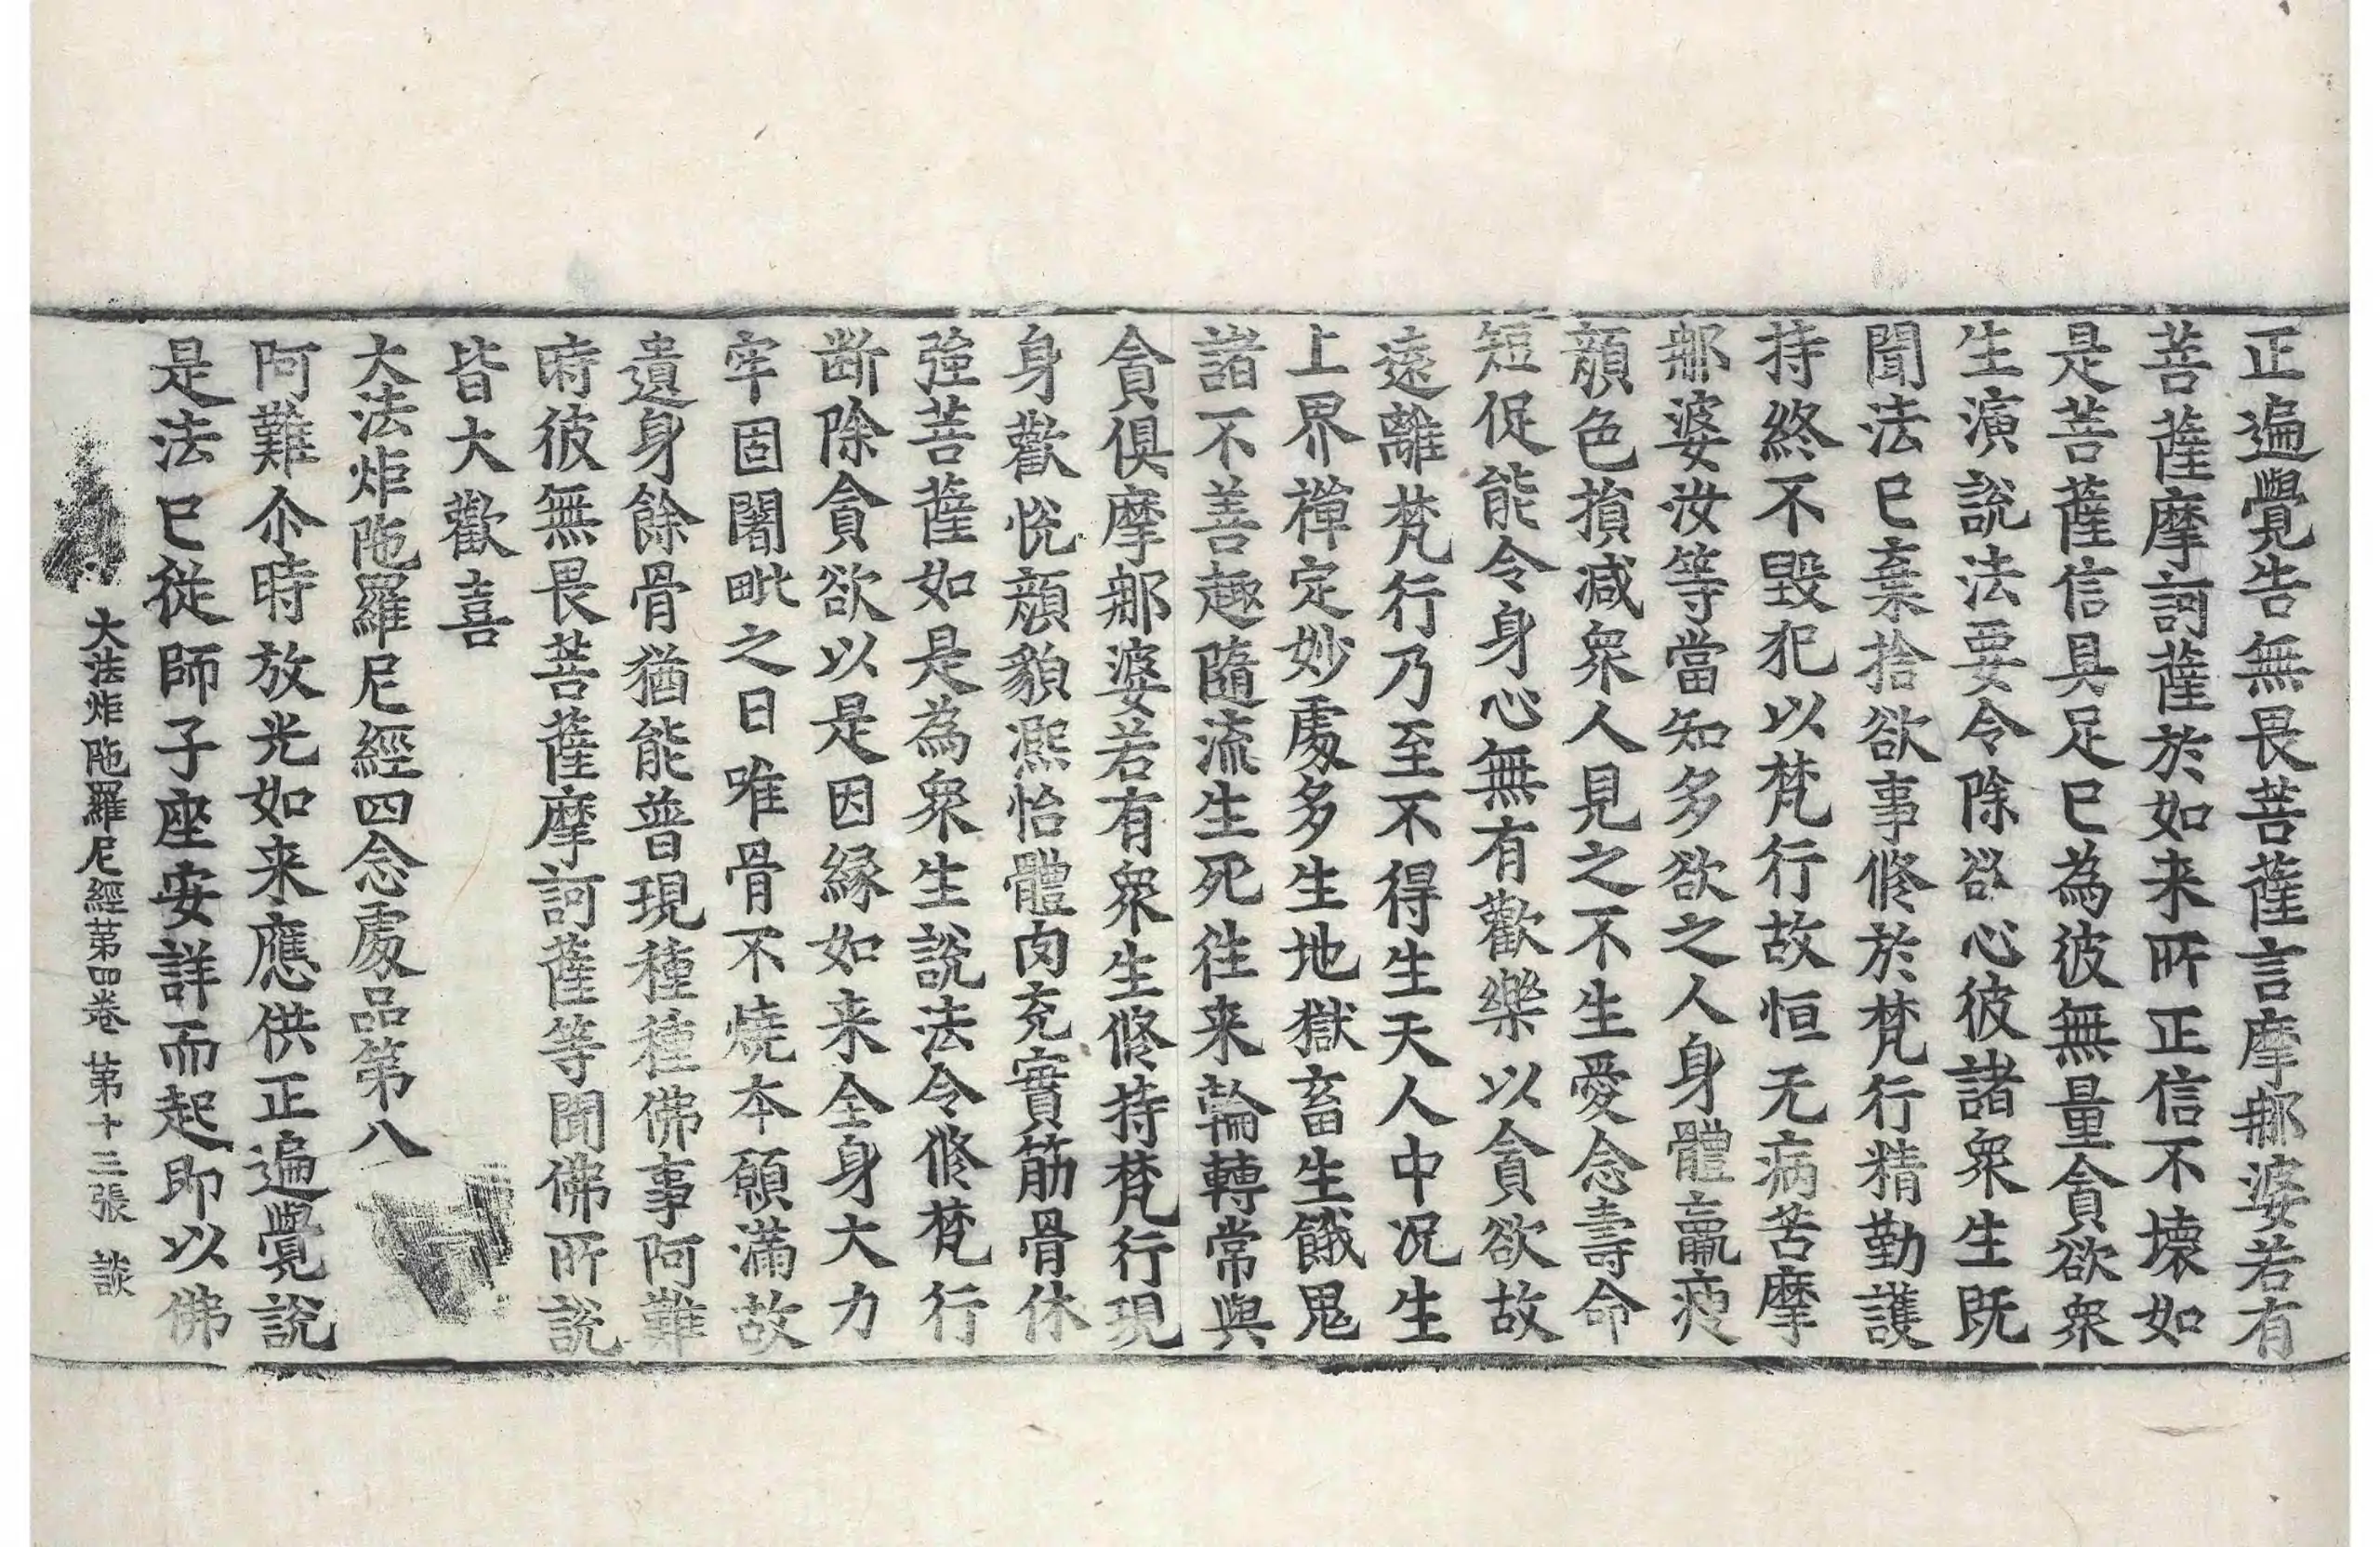 正遍覺告無畏菩薩言摩那婆若有
菩薩摩訶薩於如来所正信不壞如
是菩薩信具足已為彼無量貪欲衆
生演說法要令除欲心彼諸衆生既
聞法已棄捨欲事修於梵行精勤護
持終不毀犯以梵行故恒无病苦摩
那婆汝等當知多欲之人身體羸瘦
顏色損減衆人見之不生愛念壽命
短促能令身心無有歡樂以貪欲故
遠離梵行乃至不得生天人中况生
上界禪定妙處多生地獄畜生餓鬼
諸不善趣隨流生死往来輪轉常與
貪俱摩那婆若有衆生修持梵行現
身歡悅顏貌熙怡體肉充實筋骨休
強菩薩如是為衆生說法令修梵行
斷除貪欲以是因緣如来全身大力
牢固闍毗之日唯骨不燒本願滿故
遺身餘骨猶能普現種種佛事阿難
時彼無畏菩薩摩訶薩等聞佛所說
皆大歡喜
大法炬陁羅尼經四念處品第八
阿難尒時放光如来應供正遍覺說
是法已從師子座安詳而起即以佛
大法炬陁羅尼經第四卷 第十三張 談